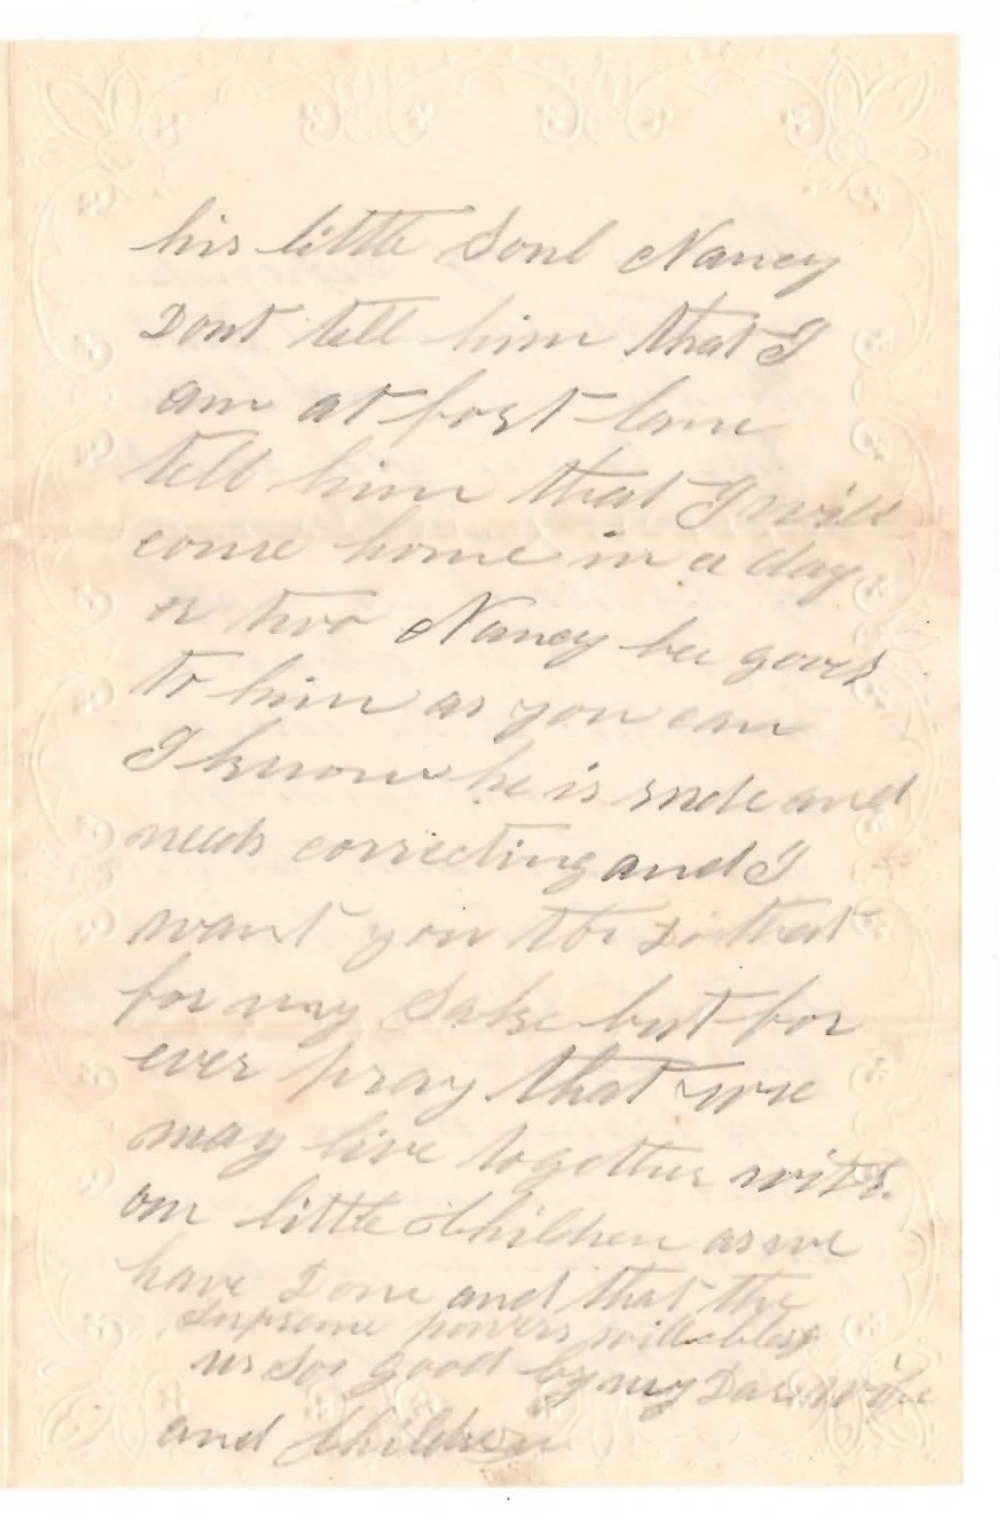 his little Soul Nancy
Dont tell him that I
am at fort lane
tell him that I will
come home in a day
or two Nancy bee good
to him as you can
I know he is rude and
needs correcting and I
want you to do that
for my Sake but for
ever pray that we
may live together with
our little Children as we
have Done and that the
Supreme powers will bless
us So good by my Dear wife
and Children